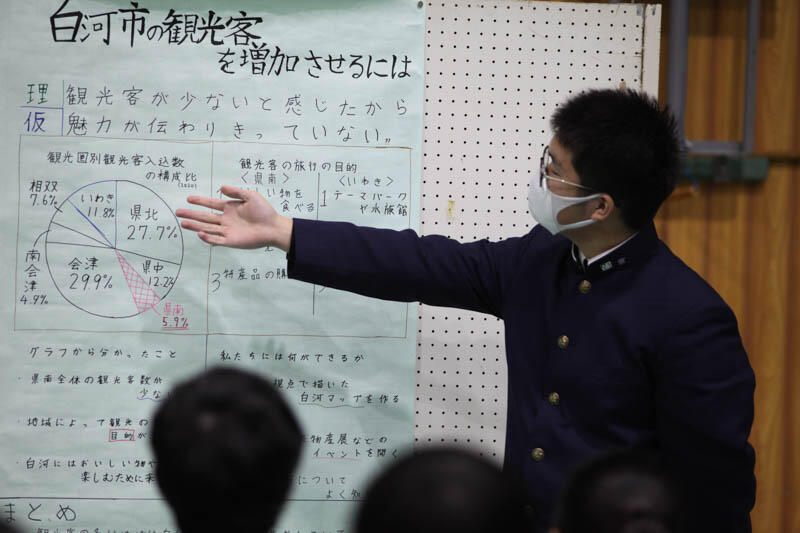 白河市の観光客
を増加させるには
理 観光客が少ないと感じたから
仮 魅力が伝わりきっていない〃
観光圏別観光客入込数
の構成比
相双
7.6%
いわき
11.8%
県北
27.7%
南会津
4.9%
会津
29.9%
県中
12.2%
県南
5.9%
観光客の旅行の目的
〈県南〉
〈いわき〉
い物を
食べる
1 テーマパーク
や水族館
3 特産品の購
グラフから分かったこと
・県南全体の観光客数が
少な
・地域によって観光の
目的が
・白河にはおいしい物や
楽しむために来
私たちには何ができるか
視点で描いた
白河マップを作る
物産展などの
イベントを開く
について
よく知
まとめ